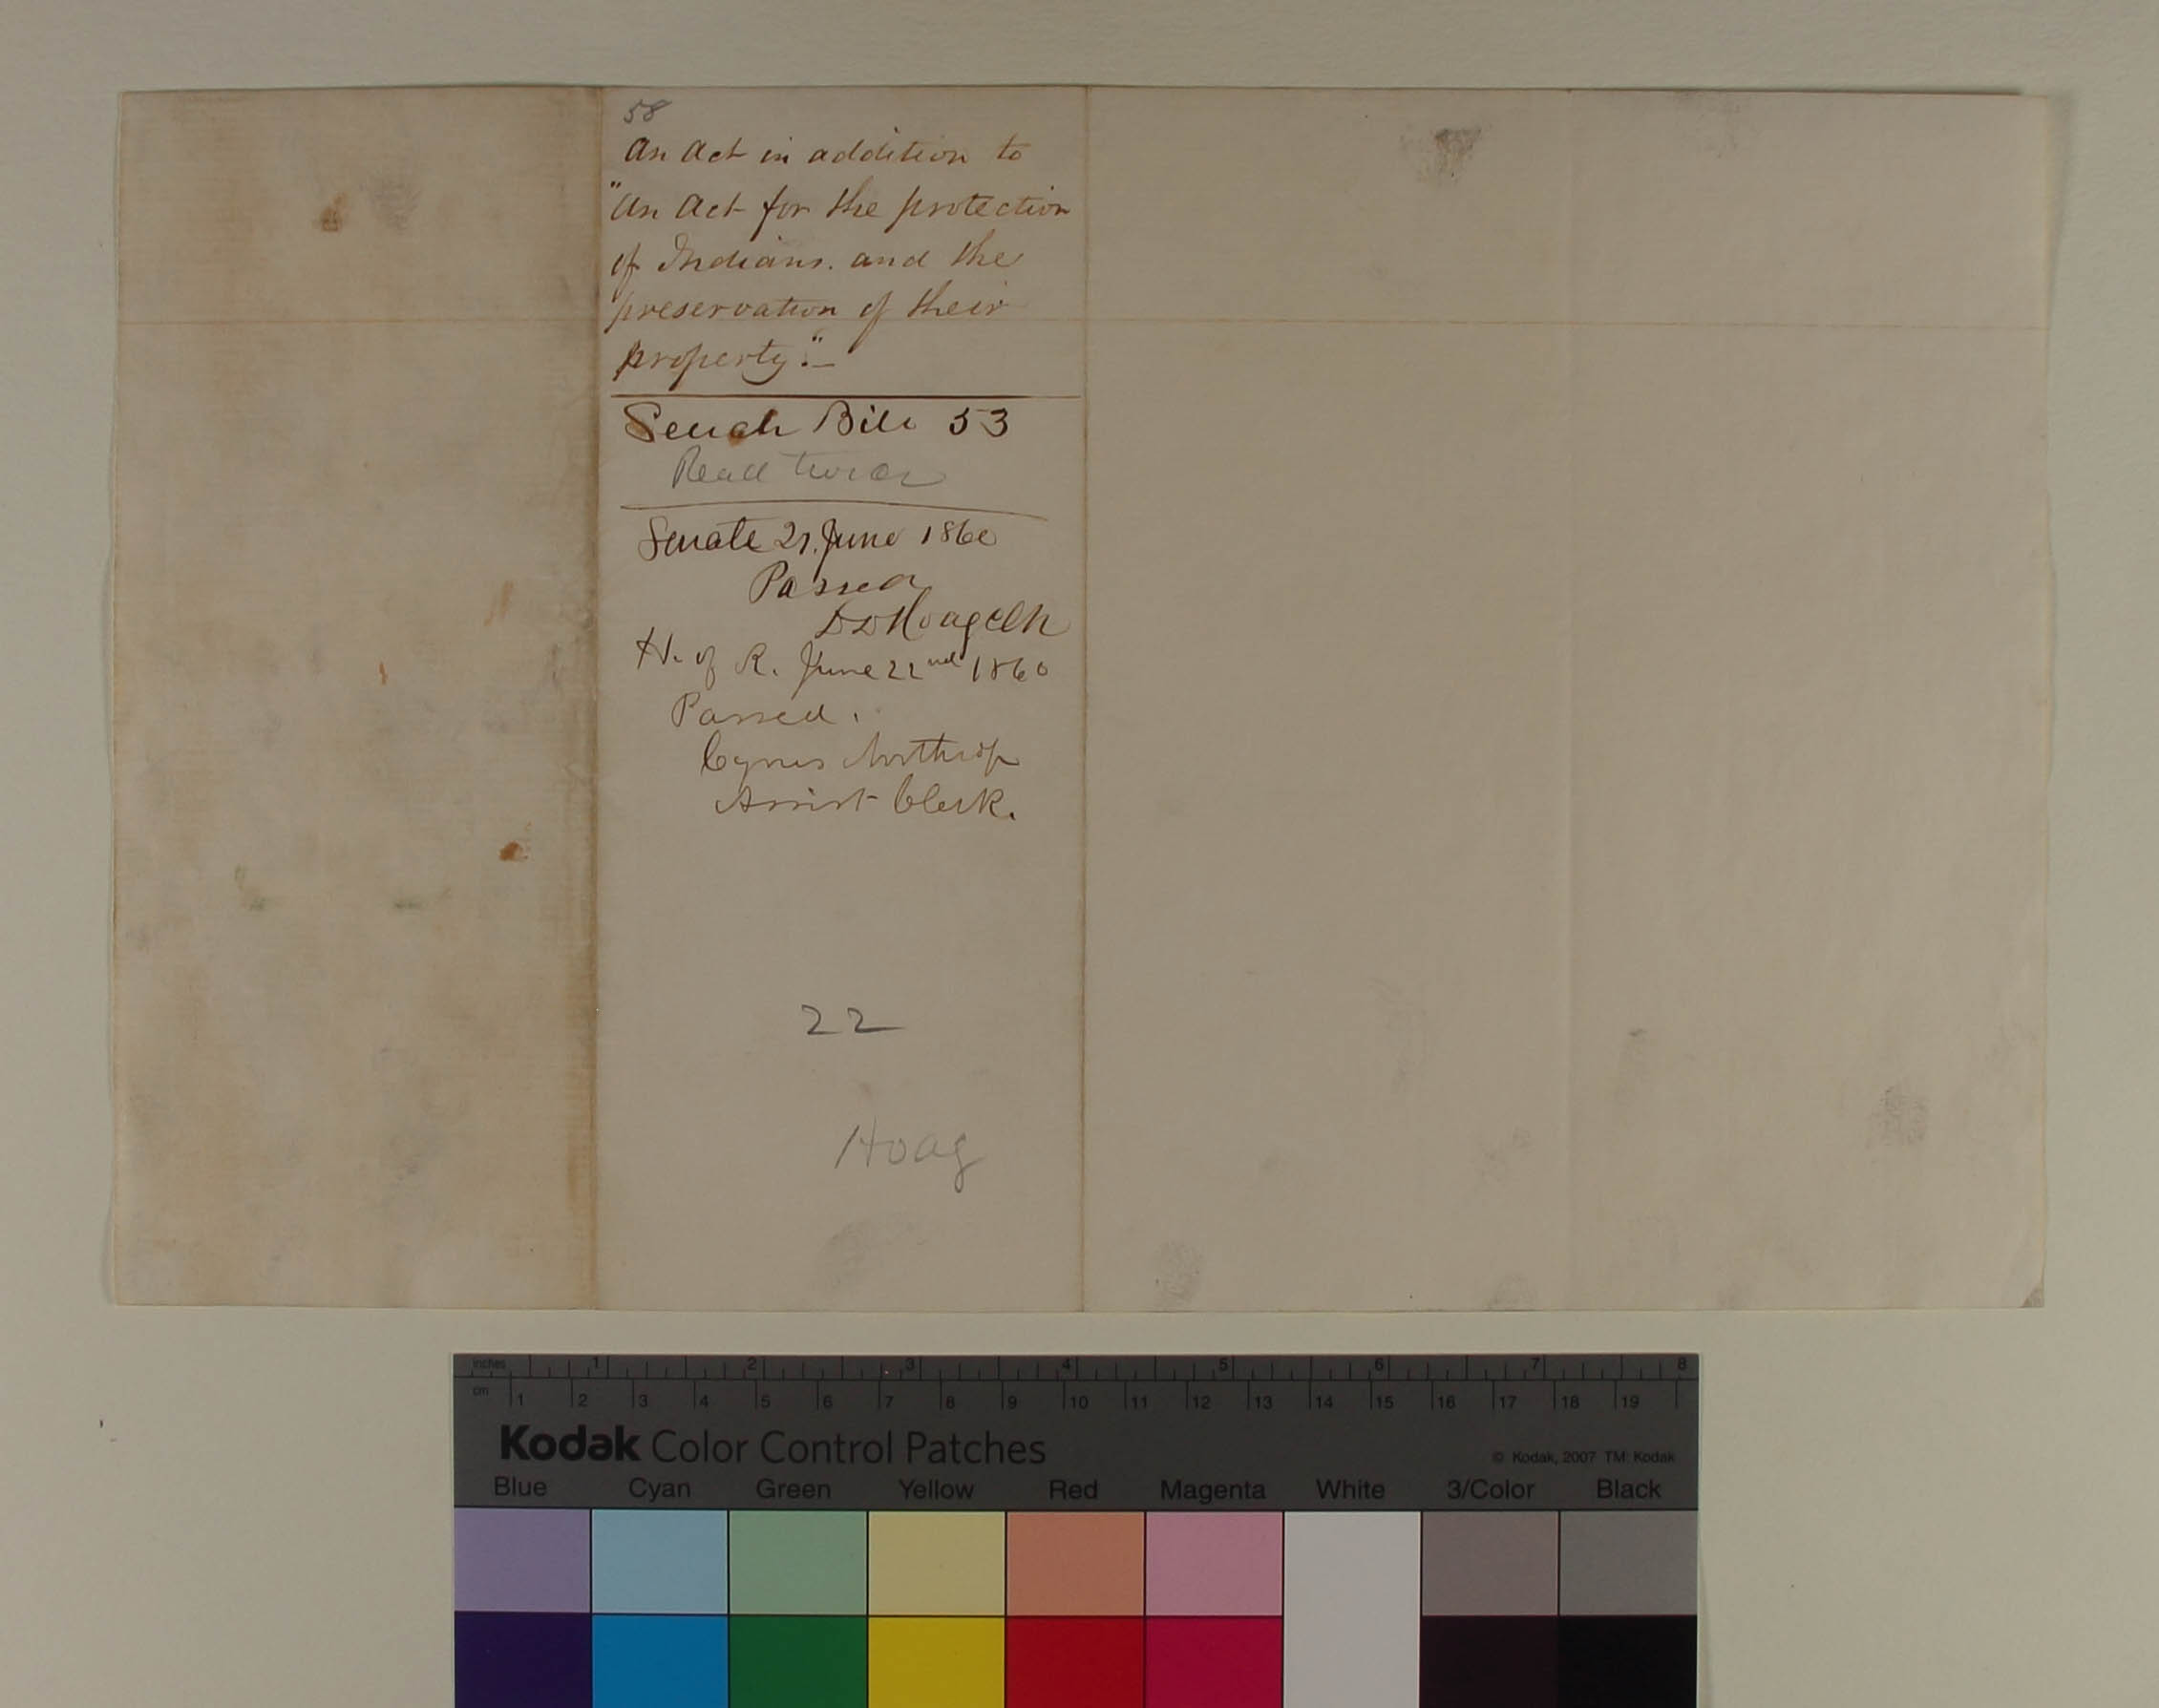 58
An Act in addition to
"An Act for the protection
of Indians. and the
preservation of their
property."
Senate Bill 53
Read twice
Senate 21. June 1860
Passed
Hoag Clk
H. of R. June 22nd 1860
Passed.
Cyrus Northrop
Assist Clerk.
22
Hoag
inches 1 2 3 4 5 6 7 8
cm 1 2 3 4 5 6 7 8 9 10 11 12 13 14 15 16 17 18 19
Kodak Color Control Patches
© Kodak, 2007 TM: Kodak
Blue Cyan Green Yellow Red Magenta White 3/Color Black